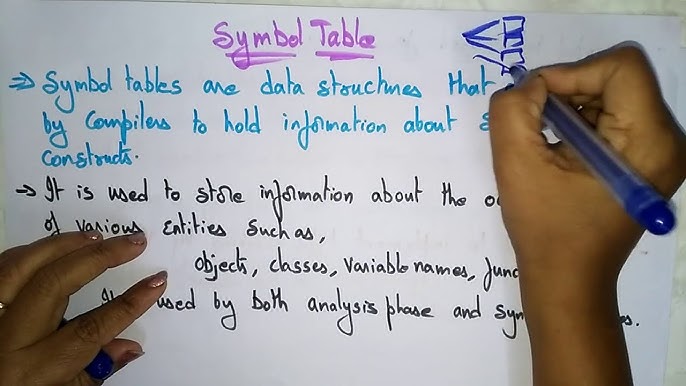 Symbol Table
⇒ Symbol tables are data structures that
by Compilers to hold information about S
constructs.
→ It is used to store information about the oc
of various Entities Such as,
Objects, classes, Variable names, func
used by both analysis phase and Syn es.